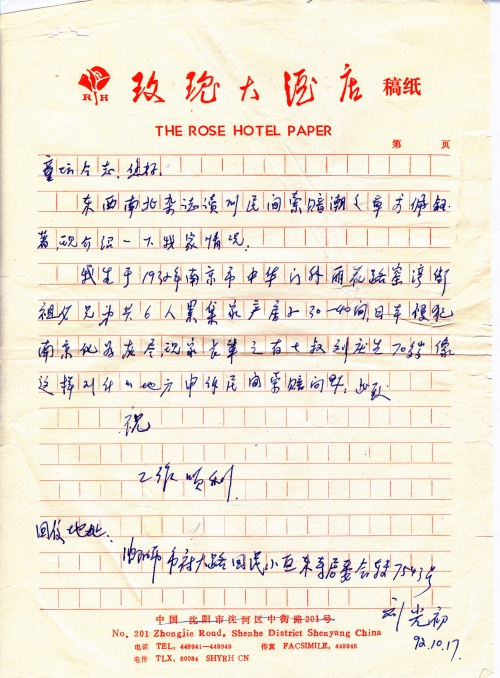 RH 玫瑰大酒店 稿纸
THE ROSE HOTEL PAPER
第 页
童 同志:您好.
东西南北杂志读到民间索赔潮 章 佩钰
著,现介绍一下我家情况:
我生于1932年南京市中华门外雨花路窑湾街
祖父兄弟共6人累集家产房 30 间,日本侵犯
南京化为灰尽,现家长辈之有七叔刘庆生70多岁像
这样到什么地方申诉民间索赔问题.此致
祝
工作顺利.
回信地址:
市府大路回民小区 居委会 754号
刘光初
92.10.17.
中国 沈阳市沈河区中街路201号
No. 201 Zhongjie Roud, Shenhe District Shenyang China
电话 TEL, 449941—449949 传真 FACSIMILE, 449946
电传 TLX, 80084 SHYRH CN